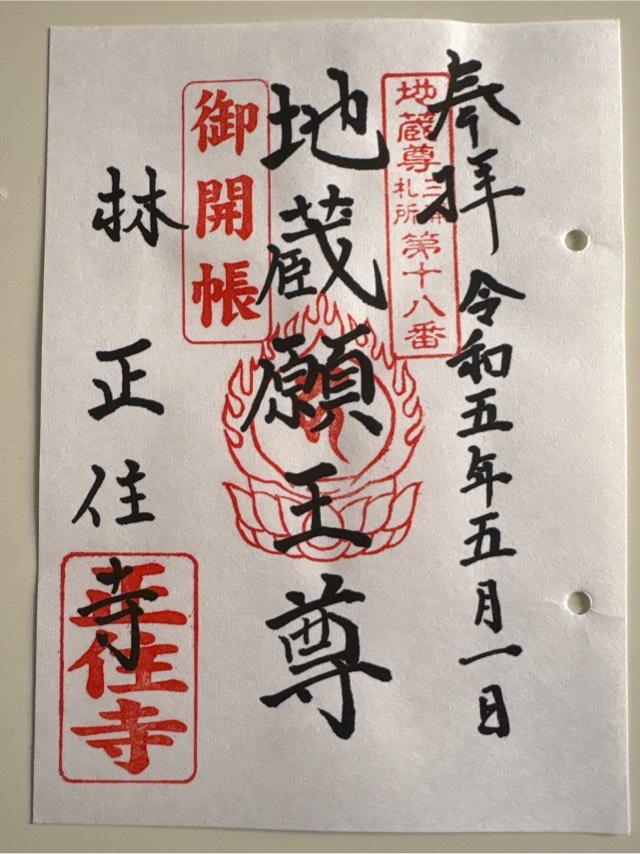 奉拝 令和五年五月一日
地蔵尊
三十三
札所
第十八番
地蔵願王尊
御開帳
林 正住寺
正住寺